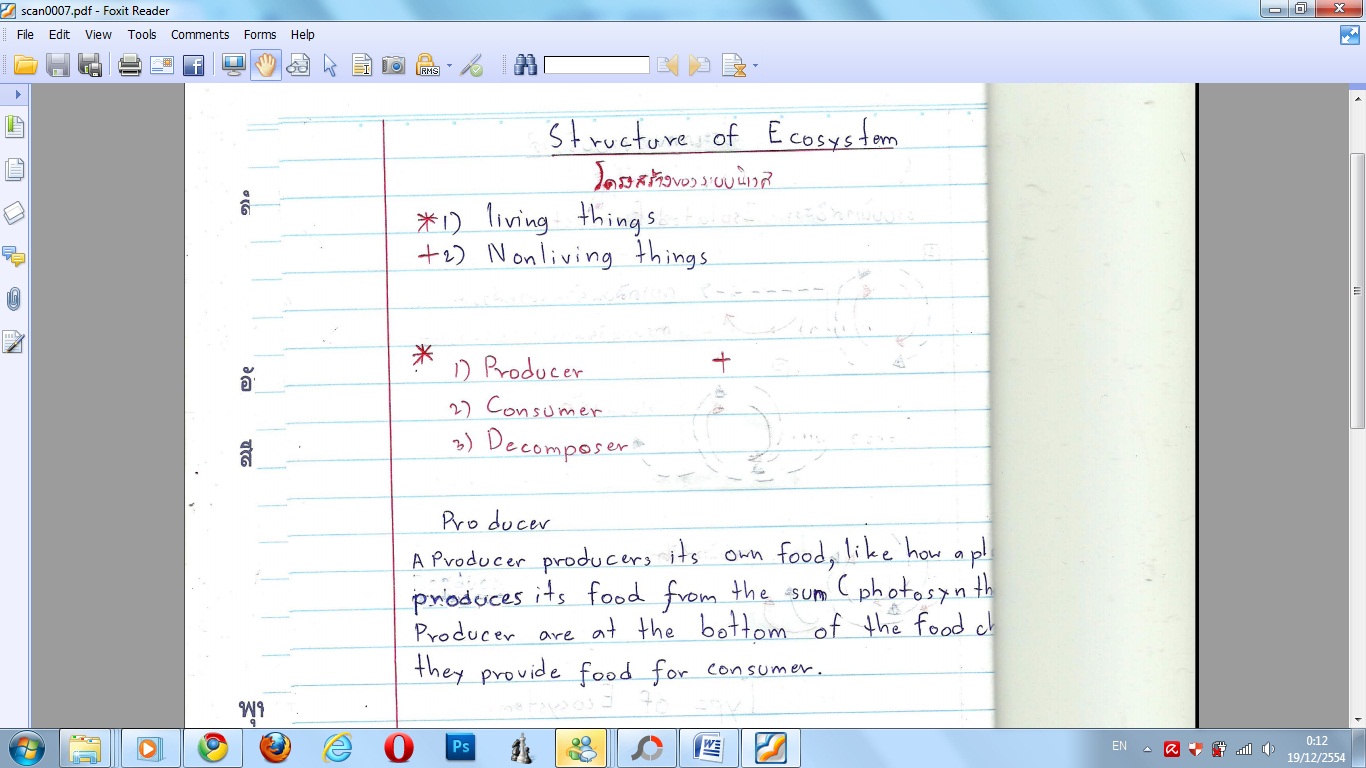 scan0007.pdf - Foxit Reader
File Edit View Tools Comments Forms Help
RMS
Structure of Ecosystem
โครงสร้างของระบบนิเวศ
*1) living things
+2) Nonliving things
* +
1) Producer
2) Consumer
3) Decomposer
Producer
A Producer producers its own food, like how a pl
produces its food from the sum (photosynth
Producer are at the bottom of the food ch
they provide food for consumer.
Ps
W
EN
0:12
19/12/2554